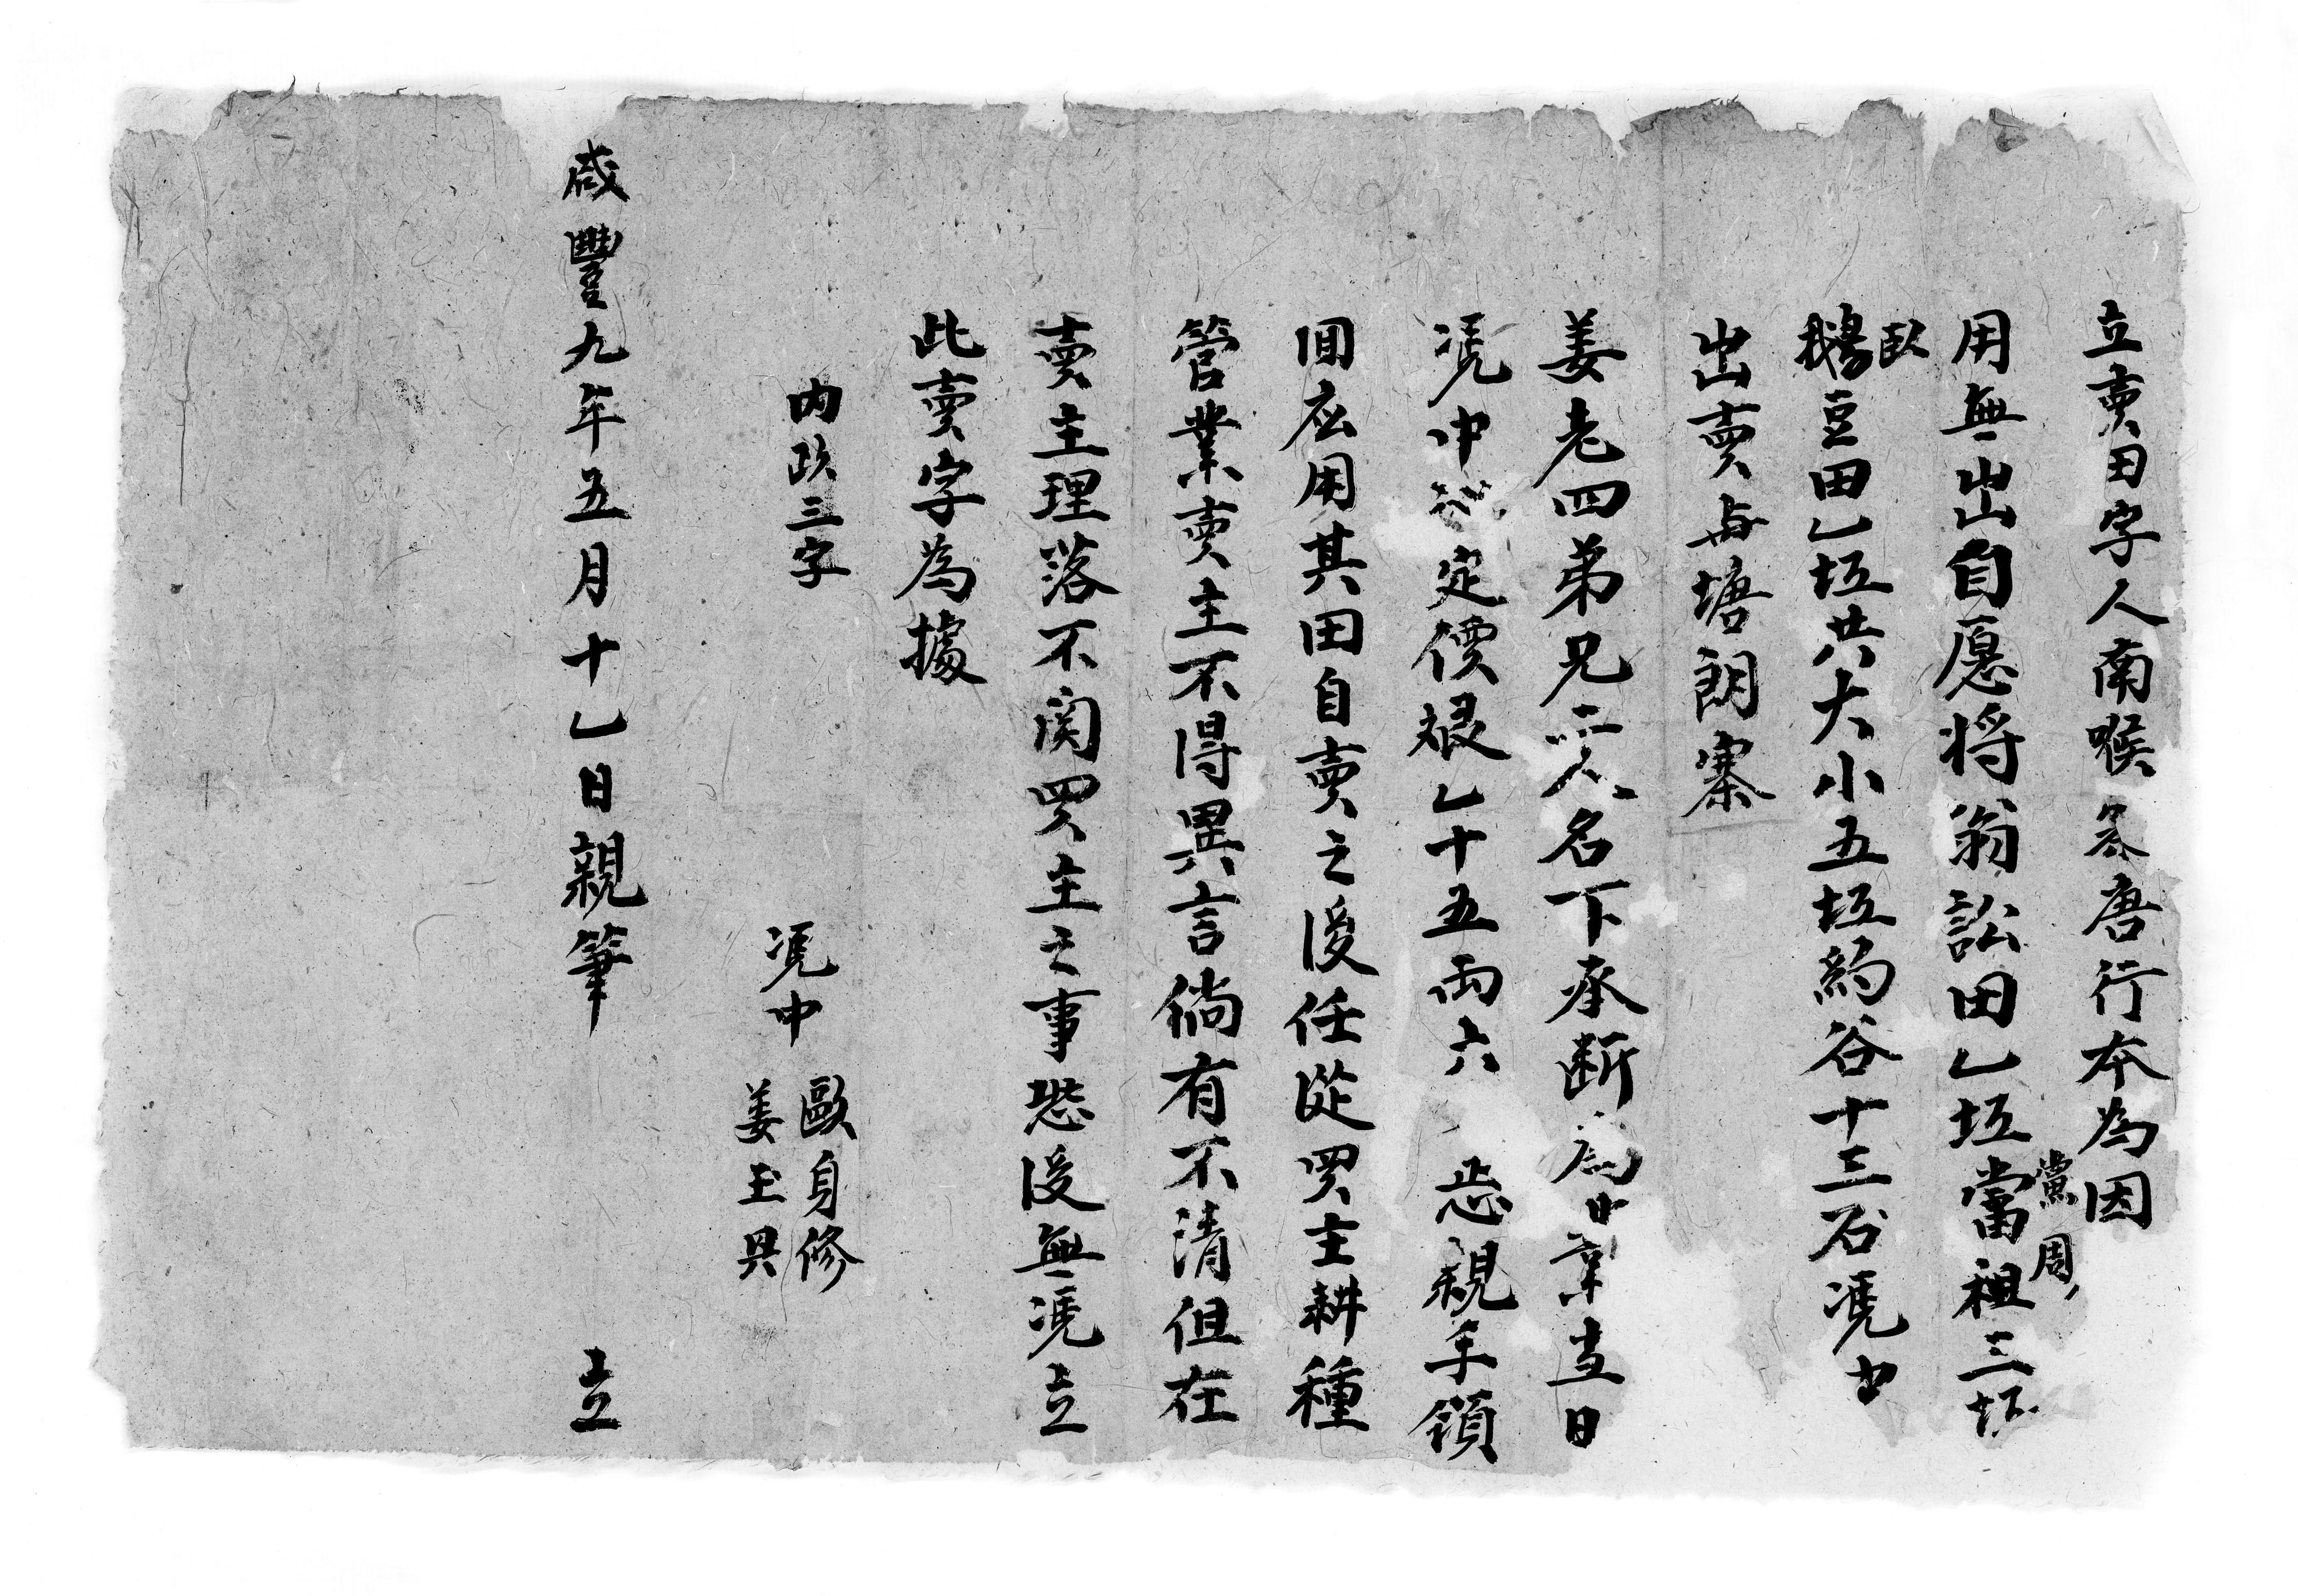 立賣田字人南喉冬唐行本為因
用無出自愿将翁訟田乚坵當祖三坵
黨周
臥
鵝豆田乚坵共大小五坵約谷十三石凴中
出賣與塘朗寨
姜老四弟兄二人名下承断為業当日
凴中定價银乚十五両六 忞親手領
囬应用其田自賣之後任從買主耕種
管業賣主不得異言倘有不清但在
賣主理落不関買主之事恐後無凴立
此賣字為據
内改三字
凴中 歐身修
姜玉興
咸豐九年五月十乚日親筆 立